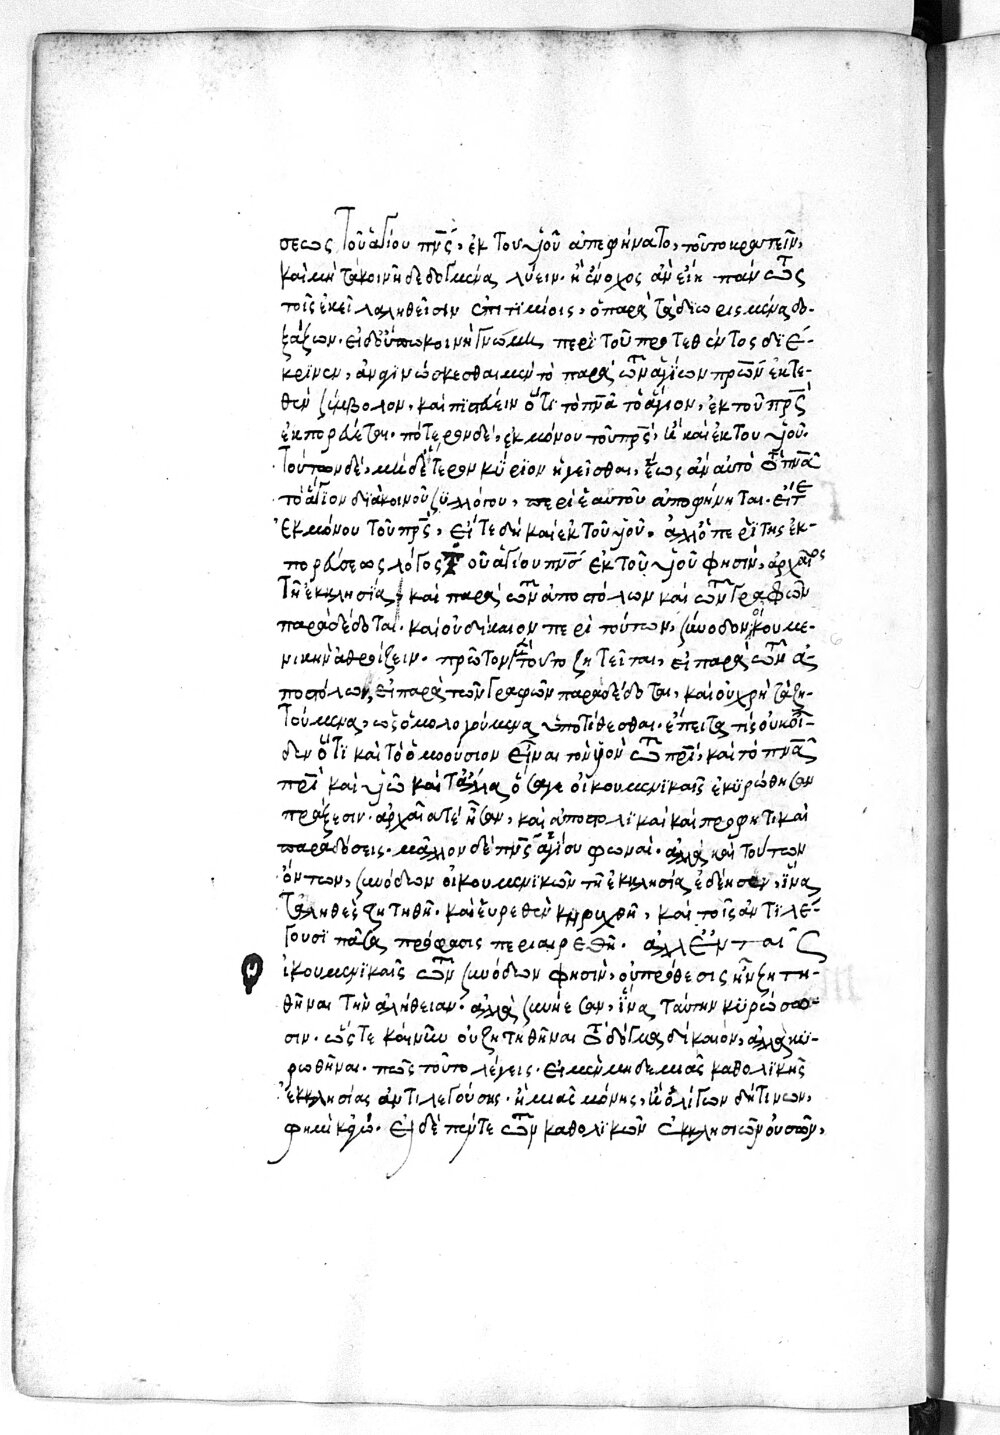 σεως τοῦ ἁγίου πν̅ς, ἐκ τοῦ υἱοῦ ἀπεφήνατο, τοῦτο κρατεῖν,
καὶ μὴ τὰ κοινῆ δεδογμένα λύειν. ἢ ἔνοχος ἂν εἴη πάντως
τοῖς ἐκεῖ λαληθεῖσιν ἐπιτιμίοις, ὁ παρὰ τὰ διωρισμένα δο-
ξάζων. εἰ δ' οὔπω κοινὴ γνώμη περὶ τοῦ προτεθέντος διέ-
κρινεν, ἀναγινώσκεσθαι μὲν τὸ παρὰ τῶν ἁγίων πρ̅ων ἐκτε-
θὲν σύμβολον, καὶ πιστεύειν ὅτι τὸ πν̅α τὸ ἅγιον, ἐκ τοῦ πρ̅ς
ἐκπορεύεται. πότερον δὲ, ἐκ μόνου τοῦ πρ̅ς, ἢ καὶ ἐκ τοῦ υἱοῦ.
τούτων δὲ, μηδέτερον κύριον ἡγεῖσθαι, ἕως ἂν αὐτὸ τὸ πν̅α
τὸ ἅγιον διὰ κοινοῦ συλλόγου, περὶ ἑαυτοῦ ἀποφήνηται. εἴτε
ἐκ μόνου τοῦ πρ̅ς, εἴτε δὴ καὶ ἐκ τοῦ υἱοῦ. ἀλλ' ὁ περὶ τῆς ἐκ-
πορεύσεως λόγος τοῦ ἁγίου πν̅ς ἐκ τοῦ υἱοῦ φησὶν, ἀρχαῖος
τῆ ἐκκλησία, καὶ παρὰ τῶν ἀποστόλων καὶ τῶν γραφῶν
παραδέδοται. καὶ οὐ δίκαιον περὶ τούτων, σύνοδον οἰκουμε-
νικὴν ἀθροίζειν. πρῶτον μὲν τοῦτο ζητεῖται, εἰ παρὰ τῶν ἀ-
ποστόλων, εἰ παρὰ τῶν γραφῶν παραδέδοται, καὶ οὐ χρὴ τὰ ζη-
τούμενα, ὡς ὁμολογούμενα ὑποτίθεσθαι. ἔπειτα τίς οὐκ οἶ-
δεν ὅτι καὶ τὸ ὁμοούσιον εἶναι τὸν υἱὸν τῶ πρ̅ι, καὶ τὸ πν̅α
πρ̅ι καὶ υἱῶ καὶ τἄλλα ὅσα γε οἰκουμενικαῖς ἐκυρώθησαν
πράξεσιν. ἀρχαῖά τε ἦσαν, καὶ ἀποστολικαὶ καὶ προφητικαὶ
παραδόσεις. μᾶλλον δὲ πν̅ς ἁγίου φωναί. ἀλλὰ καὶ τούτων
ὄντων, συνόδων οἰκουμενικῶν τῆ ἐκκλησία ἐδέησεν, ἵνα
τἀληθὲς ζητηθῆ. καὶ εὑρεθὲν κηρυχθῆ, καὶ τοῖς ἀντιλέ-
γουσι πᾶσα πρόφασις περιαιρεθῆ. ἀλλ' ἐν ταῖς
οἰκουμενικαῖς τῶν συνόδων φησὶν, οὐ πρόθεσις ἦν ζητη-
θῆναι τὴν ἀλήθειαν. ἀλλὰ συνήεσαν, ἵνα ταύτην κυρώσω-
σιν. ὥστε κἀνῦν οὐ ζητηθῆναι τὸ δόγμα δίκαιον, ἀλλὰ κυ-
ρωθῆναι. πῶς τοῦτο λέγεις. εἰ μὲν μηδεμιᾶς καθολικῆς
ἐκκλησίας ἀντιλεγούσης. ἢ μιᾶς μόνης, ἢ ὀλίγων δή τινων,
φημὶ κἀγώ. εἰ δὲ πέντε τῶν καθολικῶν ἐκκλησιῶν οὐσῶν,